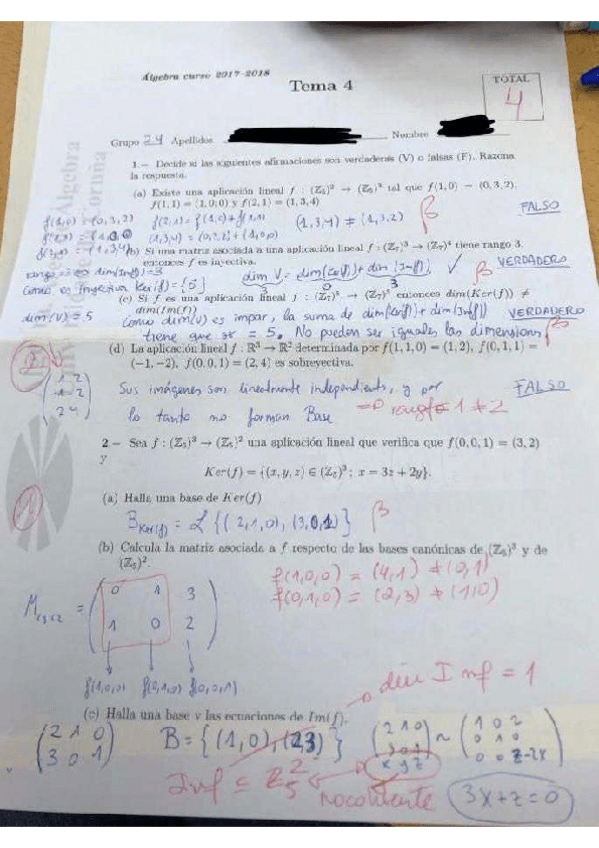 Álgebra curso 2017-2018
Tema 4
TOTAL
4
Grupo 24 Apellidos Nombre
1.- Decide si las siguientes afirmaciones son verdaderas (V) o falsas (F). Razona
la respuesta.
(a) Existe una aplicación lineal f : (Z₅)² → (Z₅)³ tal que f(1,0) = (0,3,2),
f(1,1) = (1,0,0) y f(2,1) = (1,3,4)
FALSO
f(1,0) = (0,3,2) f(2,1) = f(1,0)+f(1,1) (1,3,4) ≠ (1,3,2) β
(1,3,4) = (0,3,2)+(1,0,0)
(b) Si una matriz asociada a una aplicación lineal f : (Z₇)³ → (Z₇)⁴ tiene rango 3,
entonces f es inyectiva.
VERDADERO
dim V = dim(Ker(f)) + dim(Im(f)) ✓ β
3 0 3
Como es inyectiva Ker(f) = {0}
(c) Si f es una aplicación lineal f : (Z₇)⁵ → (Z₇)³ entonces dim(Ker(f)) ≠
dim(Im(f))
VERDADERO
dim(V) = 5 Como dim(V) es impar, la suma de dim(Ker(f)) + dim(Im(f))
tiene que = 5. No pueden ser iguales las dimensiones β
(d) La aplicación lineal f : R³ → R² determinada por f(1,1,0) = (1,2), f(0,1,1) =
(-1,-2), f(0,0,1) = (2,4) es sobreyectiva.
FALSO
Sus imágenes son linealmente y por
lo tanto no forman Base
1 ≠ 2
2.- Sea f : (Z₅)³ → (Z₅)² una aplicación lineal que verifica que f(0,0,1) = (3,2)
y
Ker(f) = {(x,y,z) ∈ (Z₅)³; x = 3z + 2y}.
(a) Halla una base de Ker(f)
B_Ker(f) = L {(2,1,0), (3,0,1)} β
(b) Calcula la matriz asociada a f respecto de las bases canónicas de (Z₅)³ y de
(Z₅)².
f(1,0,0) = (4,1) ≠ (0,1)
f(0,1,0) = (2,3) ≠ (1,0)
0 1 3
1 0 2
f(1,0,0) f(0,1,0) f(0,0,1)
dim Imf = 1
(c) Halla una base y las ecuaciones de Im(f).
2 1 0
3 0 1
B = {(1,0), (2,3)}
x y z
~
1 0 2
0 1 0
0 0 z-2x
3x+z=0